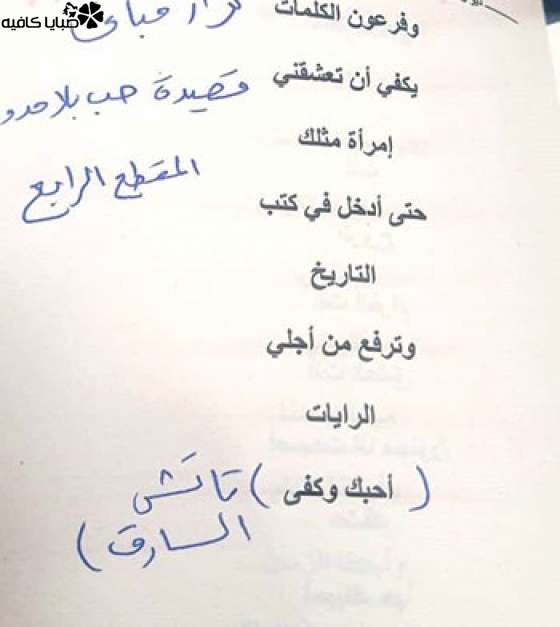 صبايا كافيه
نزار قباني
وفرعون الكلمات
يكفي أن تعشقني
قصيدة حب بلا حدو
إمرأة مثلك
المقطع الرابع
حتى أدخل في كتب
التاريخ
وترفع من أجلي
الرايات
( أحبك وكفى ) تاتش
السارق )